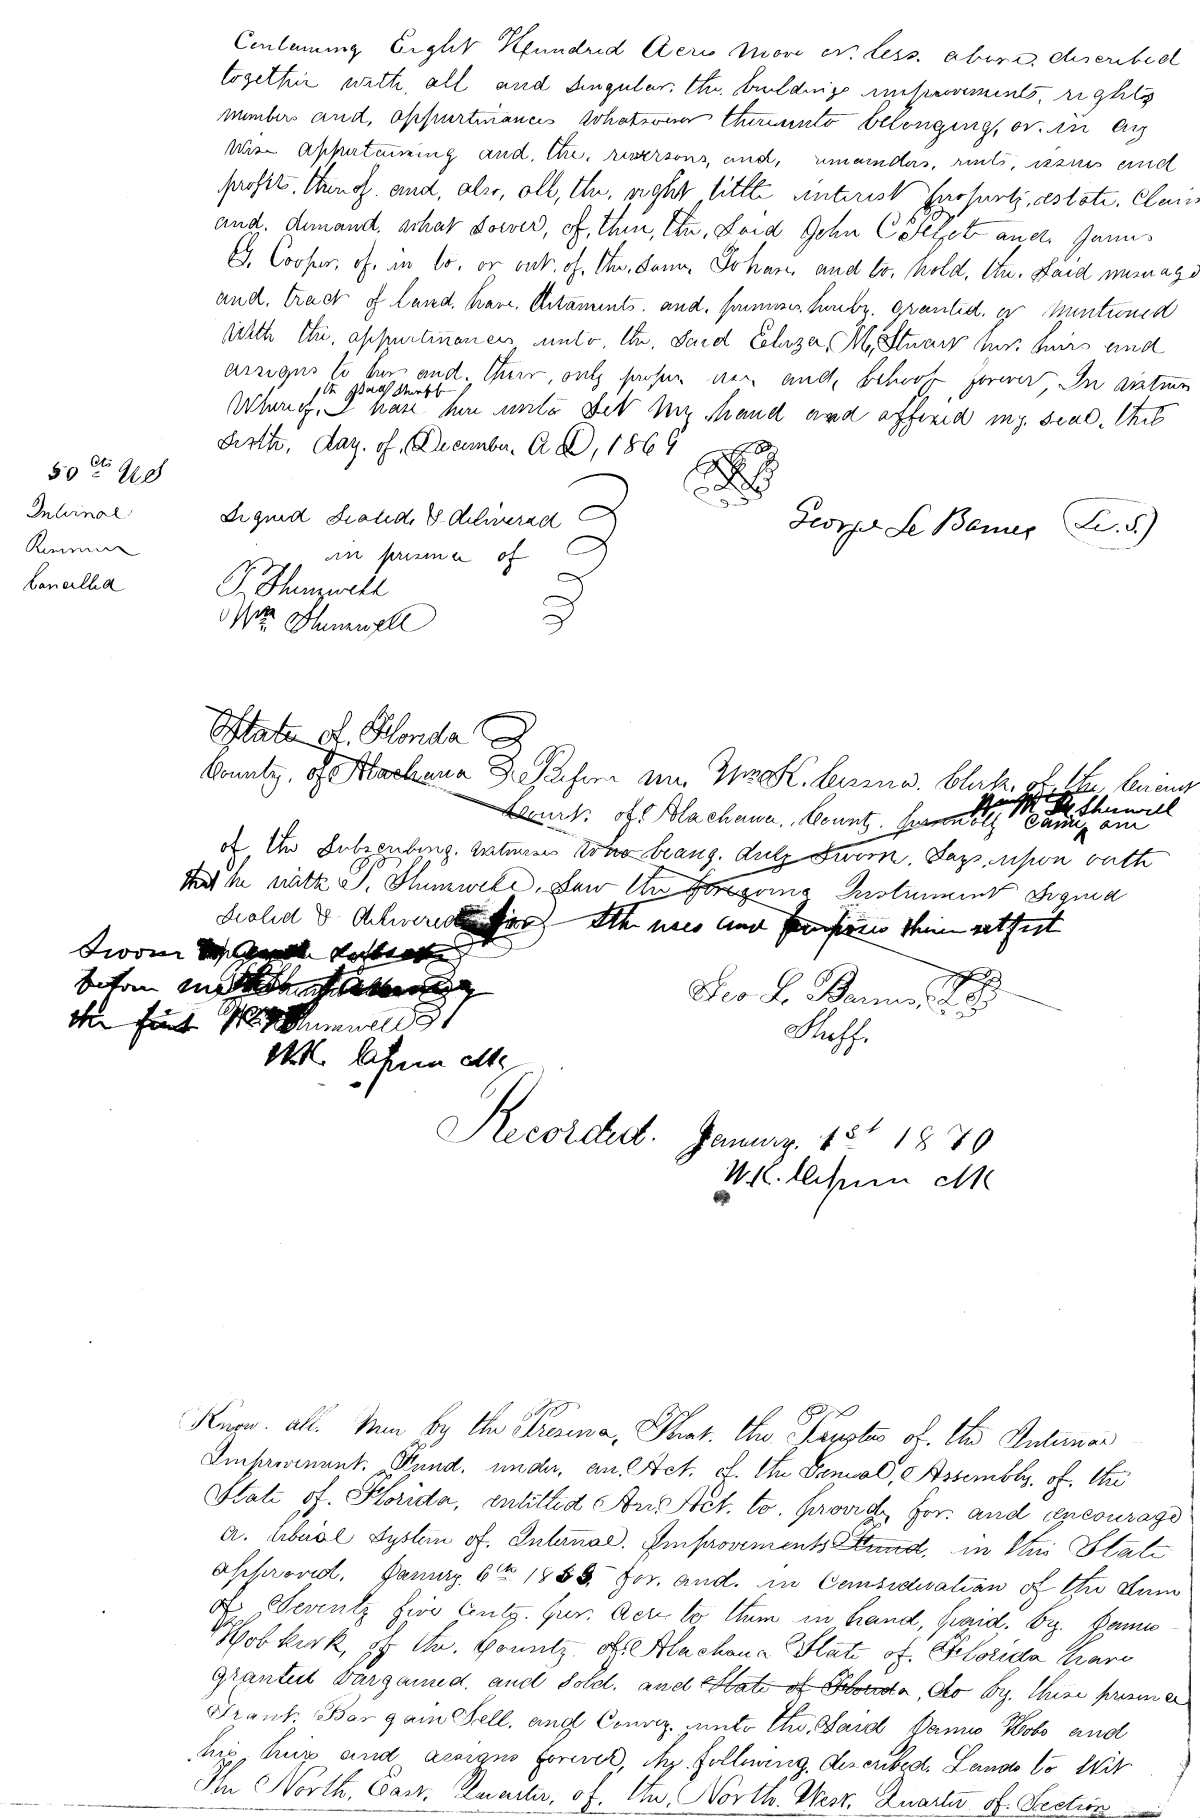 Containing Eight Hundred Acres more or less. above described
together with, all and singular, the buildings improvements, rights
members and, appurtinances whatsoever thereunto belonging, or in any
wise appertaining and, the, reversons, and, remainders, rents, issues and
profits, thereof and, also, all, the, right tittle interest property, estate, Claim
and. demand. what soever, of, them, the, Said John C and James
G. Cooper, of, in to, or out. of, the, Same To have, and to, hold, the, said
and, tract of land, have, and, premises, hereby, granted, or mentioned
with the, appurtinances, unto, the, Said Eliza, M, Stuart her. heirs and
assigns to her and. their, only proper use, and, behoof forever, In witness
the Said Sheriff
Whereof, I have here unto Set my hand and affixed my seal, this
Sixth, day, of, December, A D, 1869
50 cts US
Internal
Revenue
Cancelled
Signed Sealed, & delivered
in presence of
P. Shumwell
Wm Shumwell
George Le Barnes (L. S.)
State of, Florida
County, of Alachua Before me, Wm K. Cessna. Clerk, of, the, Circuit
Court. of, Alachua, County, personally Came, one
of the Subscribing. witnesses who being, duly Sworn, Says, upon oath
that he with P. Shumwell, Saw the foregoing Instrument Signed
Sealed & delivered for the uses and purposes therein set fort
Sworn
before me
the first Shumwell
W.K. Cessna Clk
Geo L. Barnes, L S
Sheff.
Recorded. January. 1st 1870
W.K. Cessna Clk
Know. all. Men by the Presence, That. the Trustees of. the Internal
Improvement. Fund. under, an, Act, of. the General, Assembly, of. the
State of. Florida, entitled An, Act. to. provide, for. and encourage
a. liberal System of. Internal. Improvements Fund, in this State
approved. January 6th 1855 for. and. in Consideration of the Sum
of Seventy five Cents. per. Acre to them in hand, paid. by. James
Hobkirk, of the. County of. Alachua State of. Florida have
granted bargained, and Sold. and State of Florida, do by. these presence
Grant. Bargain Sell. and Convey. unto the, Said James Hobs and
his heirs and assigns forever, the following, described, Lands to Wit
The North, East, Quarter, of, the, North. West, Quarter of. Section